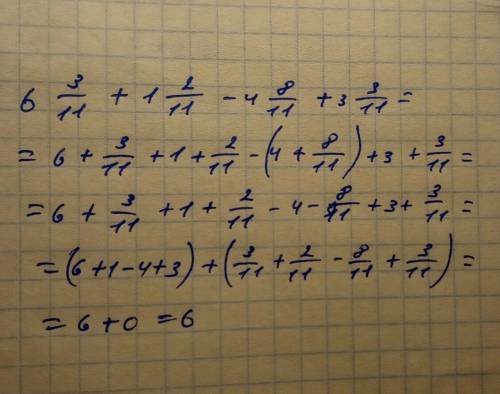 6 3/11 + 1 2/11 - 4 8/11 + 3 3/11 =
= 6 + 3/11 + 1 + 2/11 - (4 + 8/11) + 3 + 3/11 =
= 6 + 3/11 + 1 + 2/11 - 4 - 8/11 + 3 + 3/11 =
= (6 + 1 - 4 + 3) + (3/11 + 2/11 - 8/11 + 3/11) =
= 6 + 0 = 6